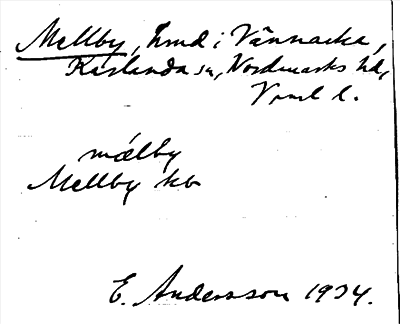 Mellby, hmd i Vännacka,
Karlanda sn, Nordmarks hd,
Vrml l.
mælby
Mellby kb
E. Andersson 1934.